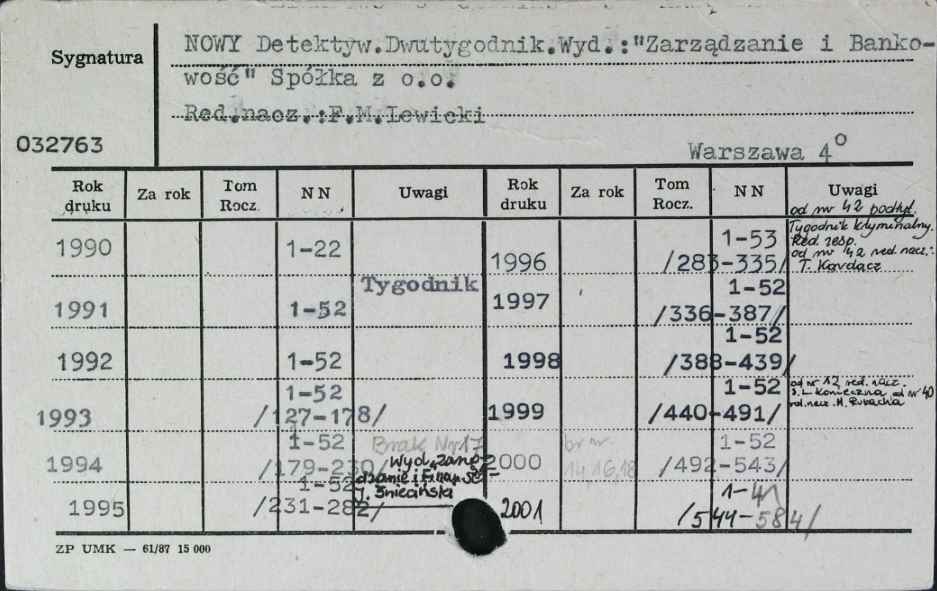 Sygnatura
032763
NOWY Detektyw.Dwutygodnik.Wyd.:"Zarządzanie i Banko-
wość" Spółka z o.o.
Red.nacz.:F.M.Lewicki
Warszawa 4°
Rok druku Za rok Tom Rocz. N N Uwagi Rok druku Za rok Tom Rocz. N N Uwagi
od nr 42 podtyt.
Tygodnik kryminalny.
Red. resp.
od nr 42 red. nacz.:
T. Kordacz
1990 1-22
1996 1-53
/283-335/
Tygodnik
1991 1-52
1997 1-52
/336-387/
1992 1-52
1998 1-52
/388-439/
1993 1-52
/127-178/
1999 1-52
/440-491/
od nr 12 red. nacz.
od nr 40
red. nacz. M.
1994 1-52
/179-230/
Brak Nr 17
2000 br nr
14,16,18
1-52
/492-543/
Wyd. "Zarzą-
dzanie i Finanse-
J. Śniecińska
1995 1-52
/231-282/
2001 1-41
/544-584/
ZP UMK — 61/87 15 000